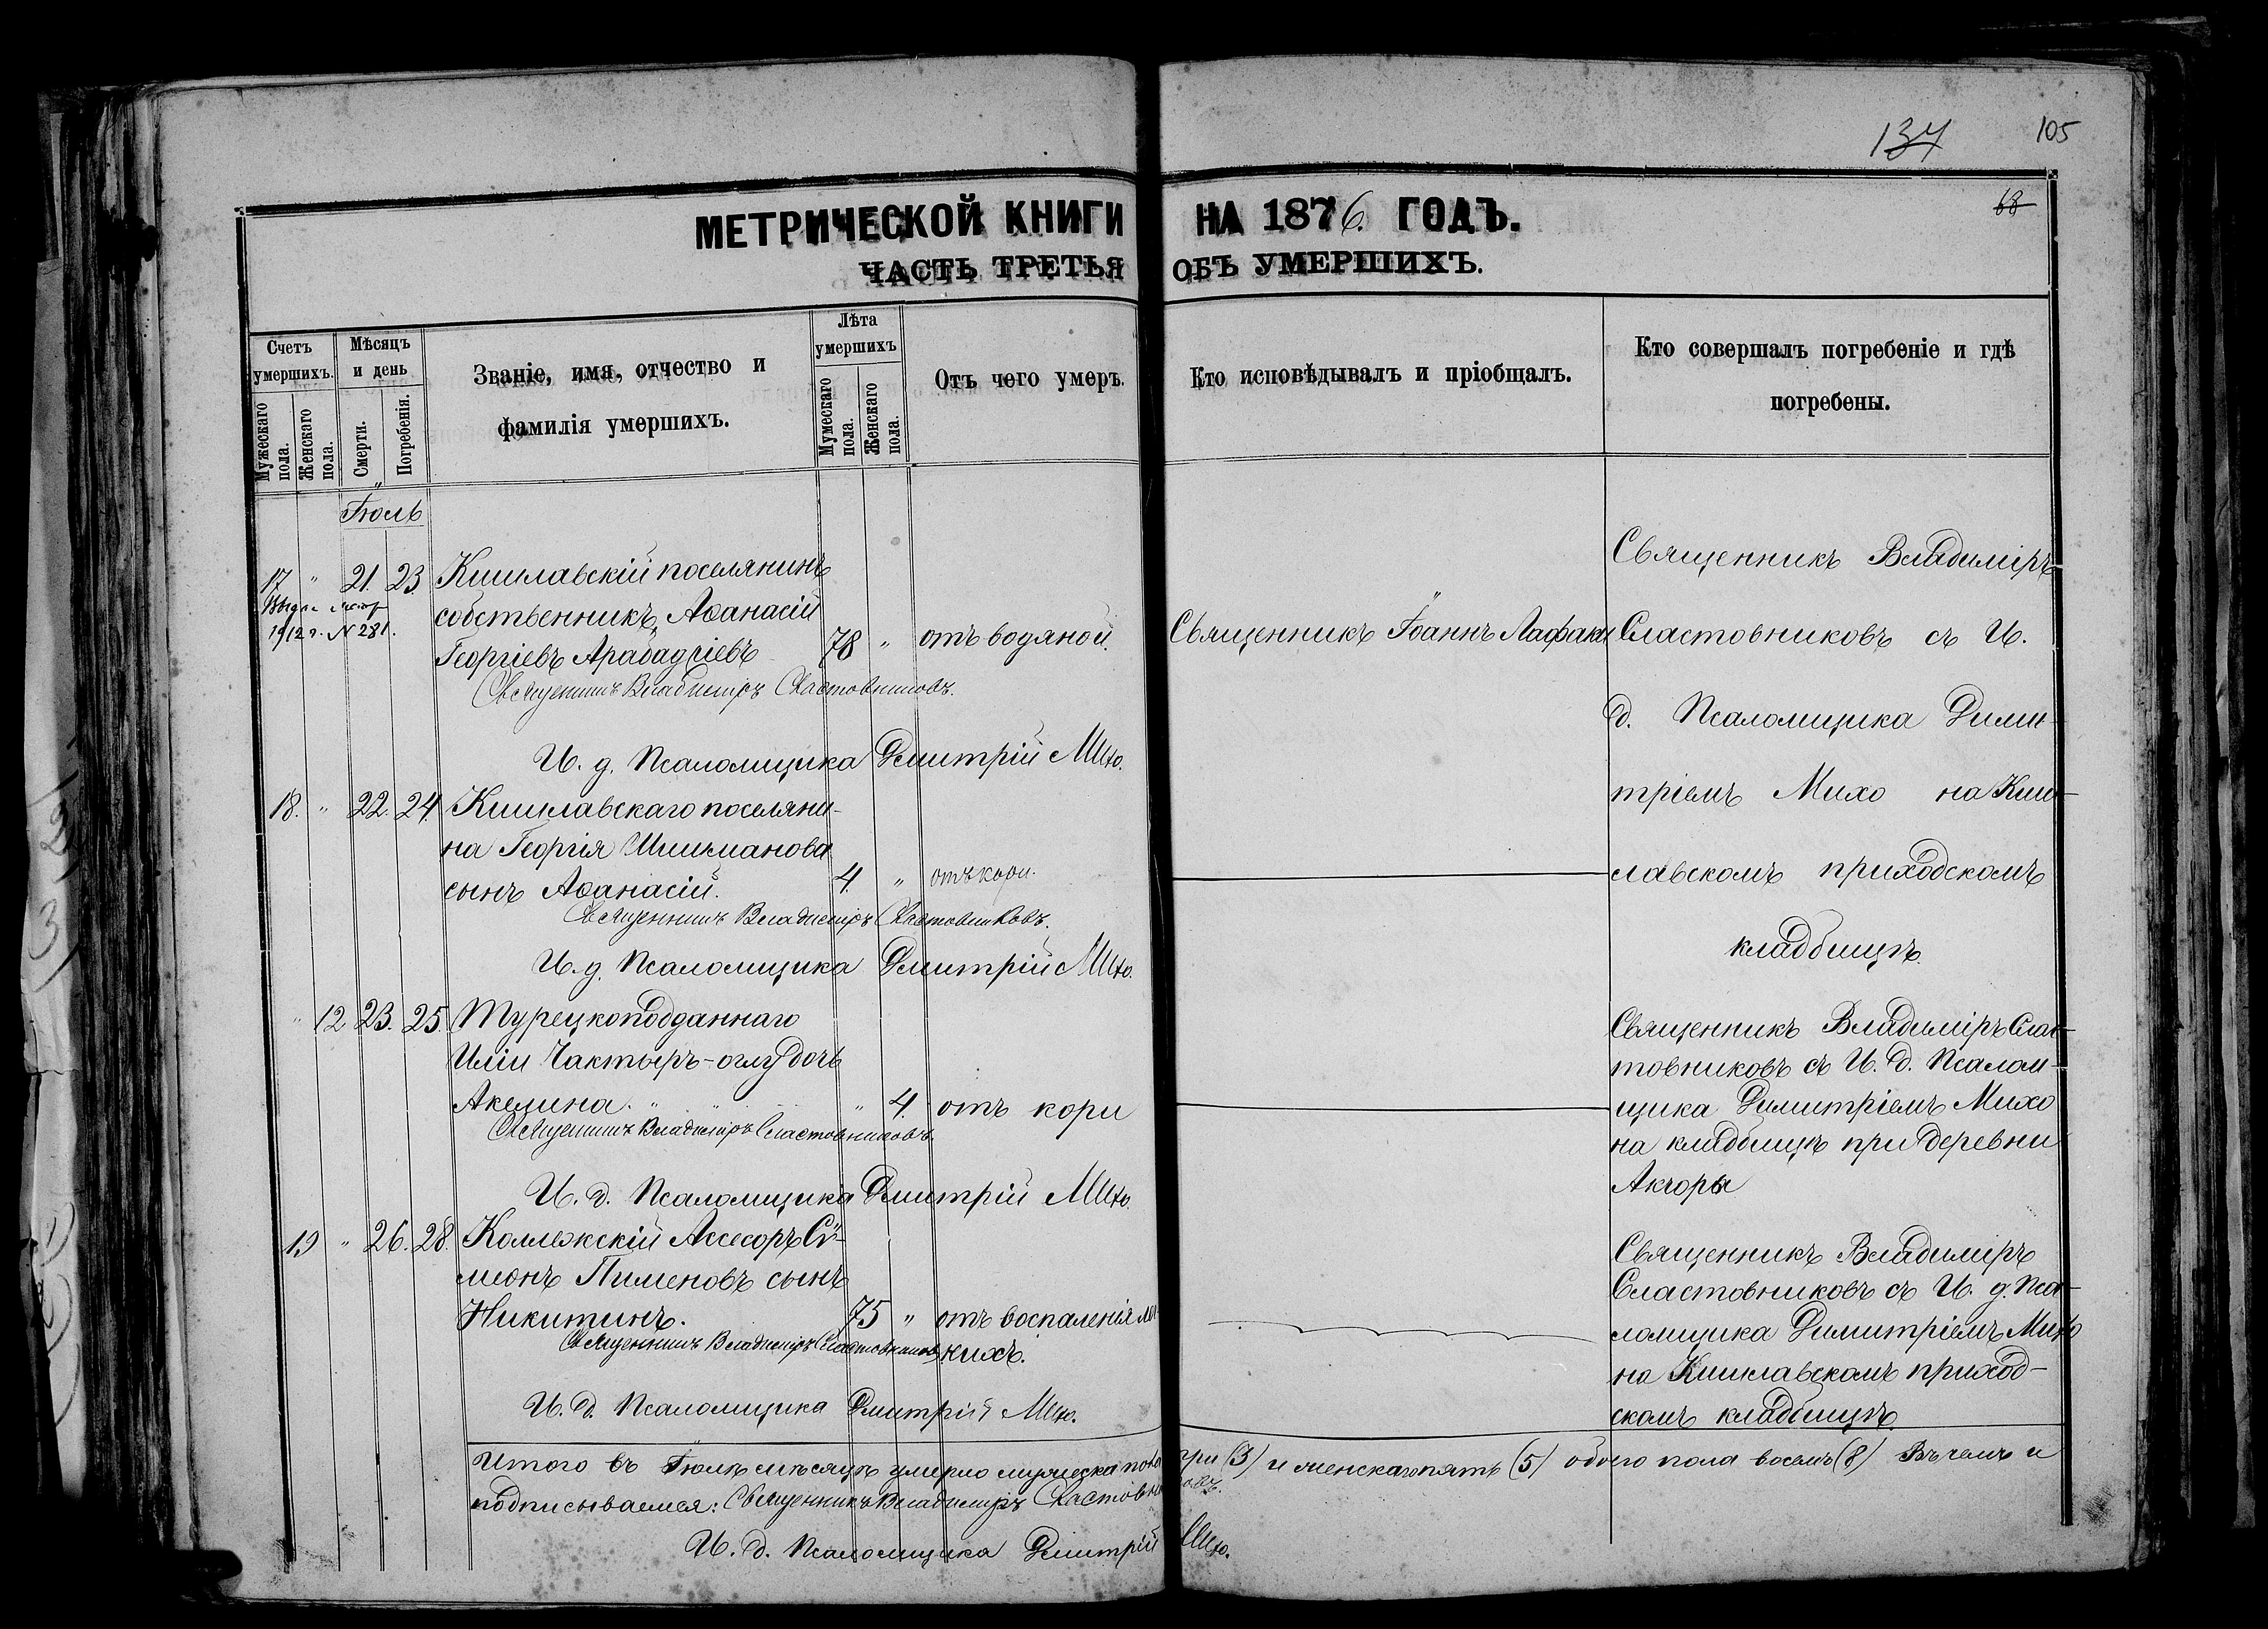 134 105
68
МЕТРИЧЕСКОЙ КНИГИ НА 1876. ГОДЪ.
ЧАСТЬ ТРЕТЬЯ ОБЪ УМЕРШИХЪ.
Счетъ умершихъ.
Мужескаго пола.
Женскаго пола.
Мѣсяцъ и день
Смерти.
Погребенія.
Званіе, имя, отчество и
фамилія умершихъ.
Лѣта умершихъ
Мужескаго пола.
Женскаго пола.
Отъ чего умеръ.
Кто исповѣдывалъ и пріобщалъ.
Кто совершалъ погребеніе и гдѣ
погребены.
Іюль
17 " 21. 23. Кишлавскій поселянинъ
1912 г. № 281.
собственникъ, Аѳанасій
Георгіевъ Арабаджіевъ 78 " отъ водяной.
Священникъ Іоаннъ Лафаки
Священникъ Владиміръ Сластовниковъ.
И. д. Псаломщика Димитрій Михо.
Священникъ Владиміръ
Сластовниковъ съ И.
д. Псаломщика Дими-
тріемъ Михо на Киш-
лавскомъ приходскомъ
кладбищѣ.
18. " 22. 24. Кишлавскаго поселяни-
на Георгія Шишманова
сынъ Аѳанасій. 4. " отъ кори.
Священникъ Владиміръ Сластовниковъ.
И. д. Псаломщика Димитрій Михо.
" 12 23. 25. Турецкоподданнаго
Иліи Чактыръ-оглу дочь
Акелина. " " " 4. отъ кори
Священникъ Владиміръ Сластовниковъ.
И. д. Псаломщика Димитрій Михо.
Священникъ Владиміръ Слас-
товниковъ съ И. д. Псалом-
щика Димитріемъ Михо
на кладбищѣ при деревни
Акчоры
19 " 26. 28. Коллежскій Ассесоръ Си-
меонъ Пименовъ сынъ
Никитинъ. 75 " отъ воспаленія
Священникъ Владиміръ Сластовниковъ
И. д. Псаломщика Димитрій Михо.
Священникъ Владиміръ
Сластовниковъ съ И. д. Пса-
ломщика Димитріемъ Михо
на Кишлавскомъ приход-
скомъ кладбищѣ.
Итого въ Іюлѣ мѣсяцѣ умерло мужеска пола три (3) и женскаго пять (5) обоего пола восемь (8) Въ чемъ и
подписываемся: Священникъ Владиміръ Сластовниковъ.
И. д. Псаломщика Димитрій Михо.